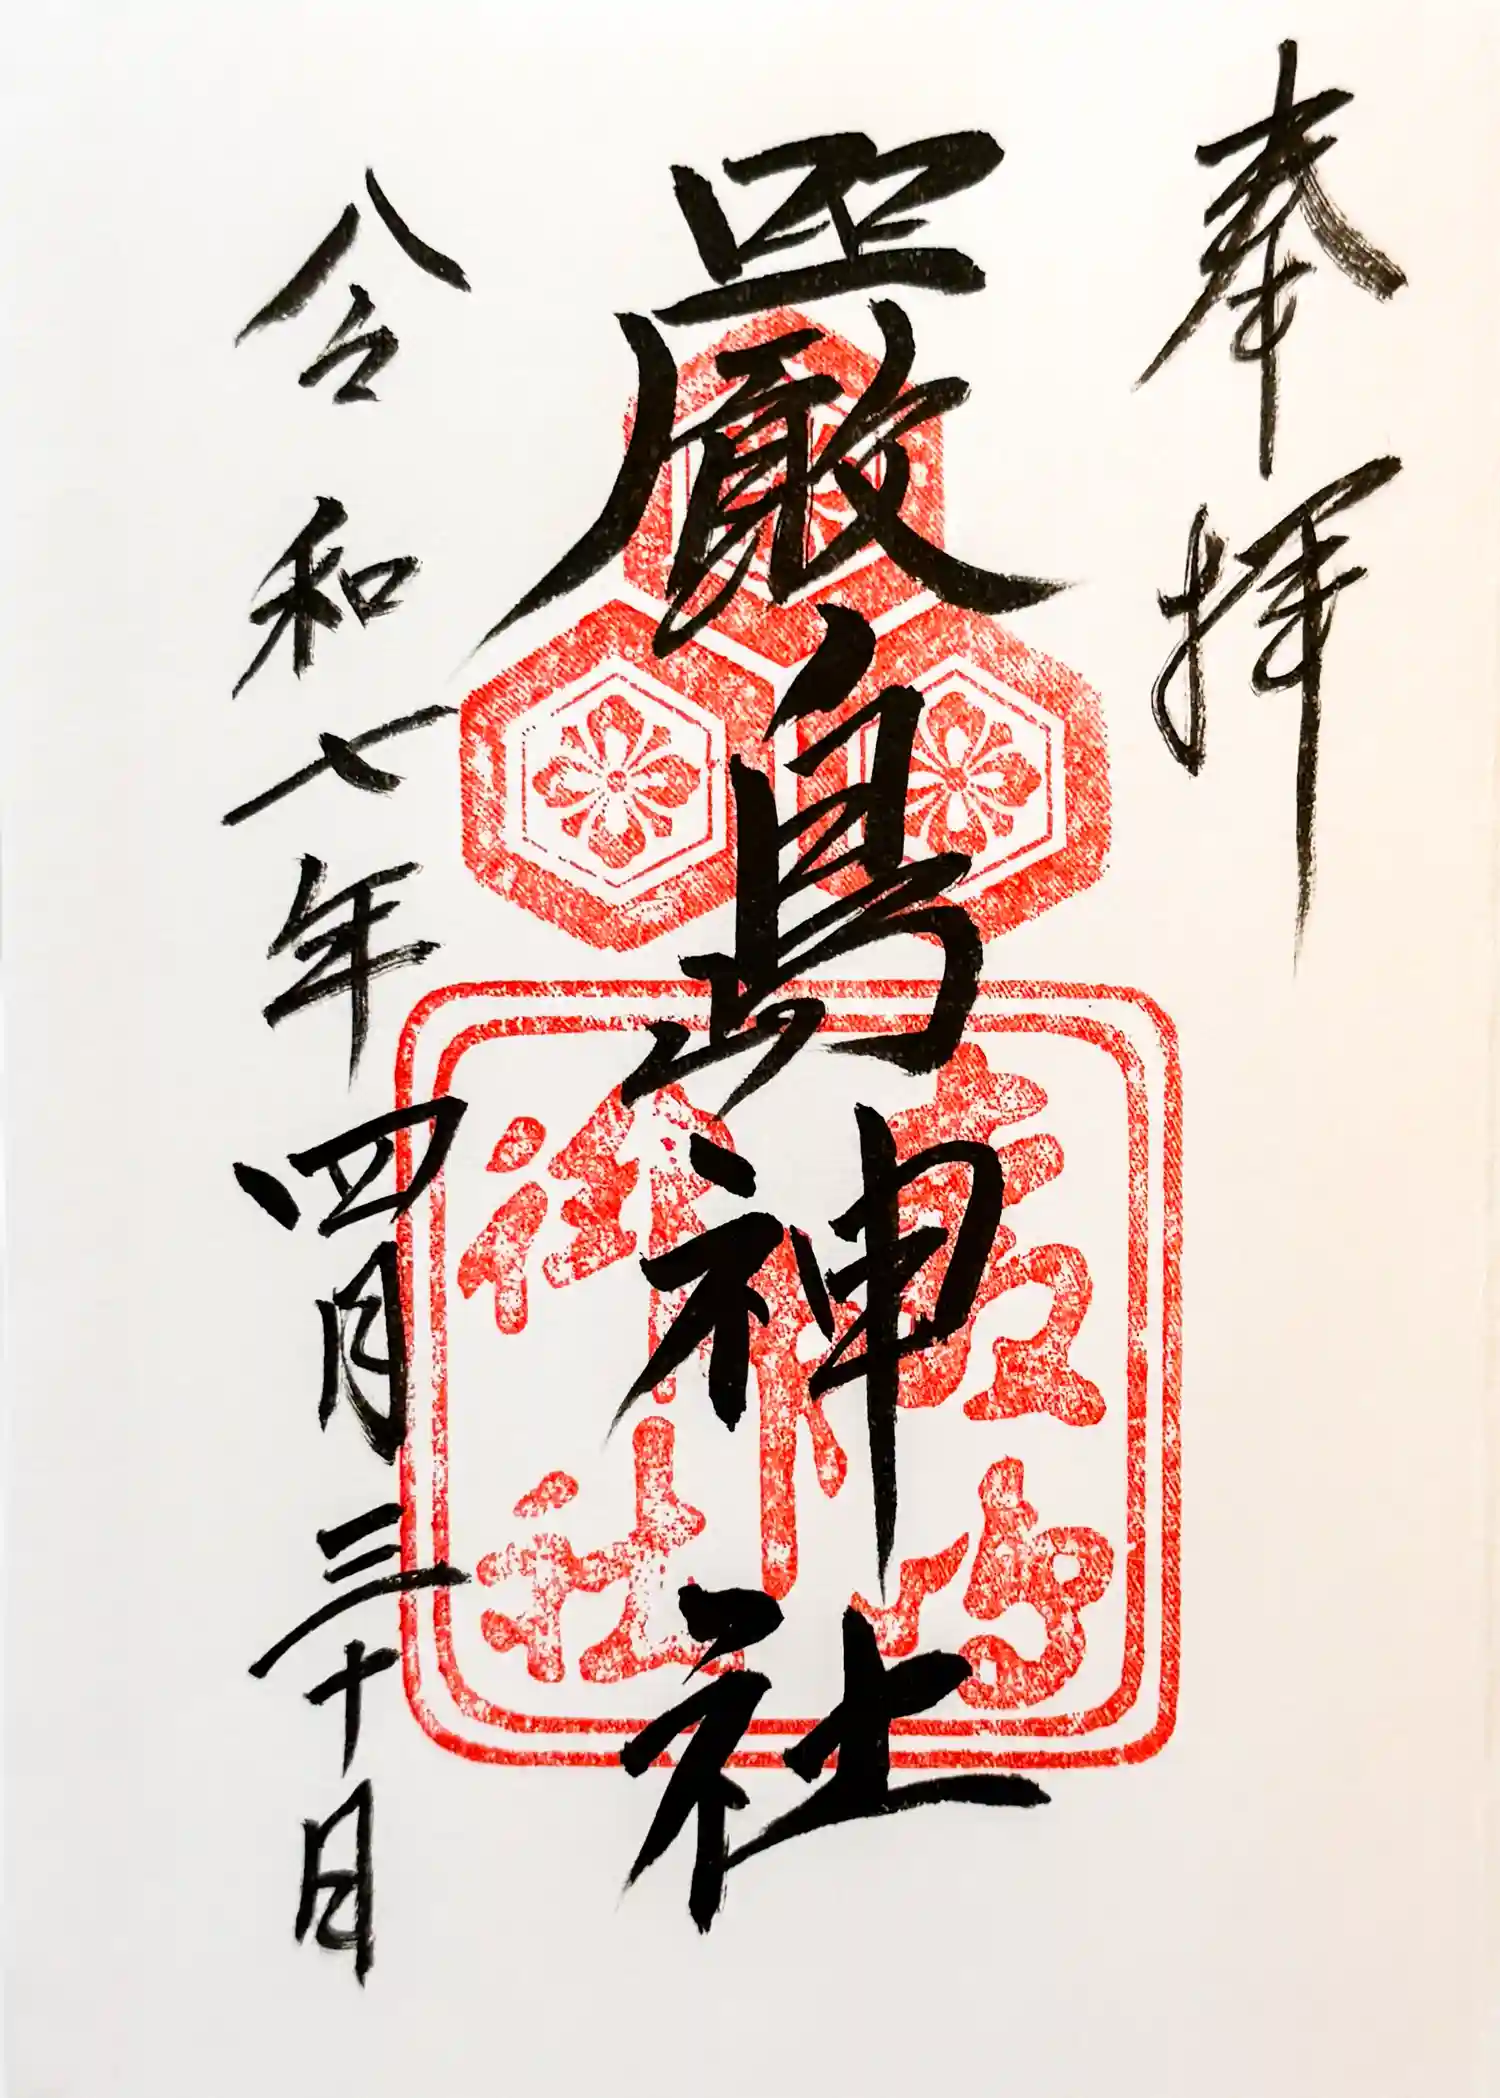 奉拝
嚴島神社
嚴島
神社
令和七年四月三十日